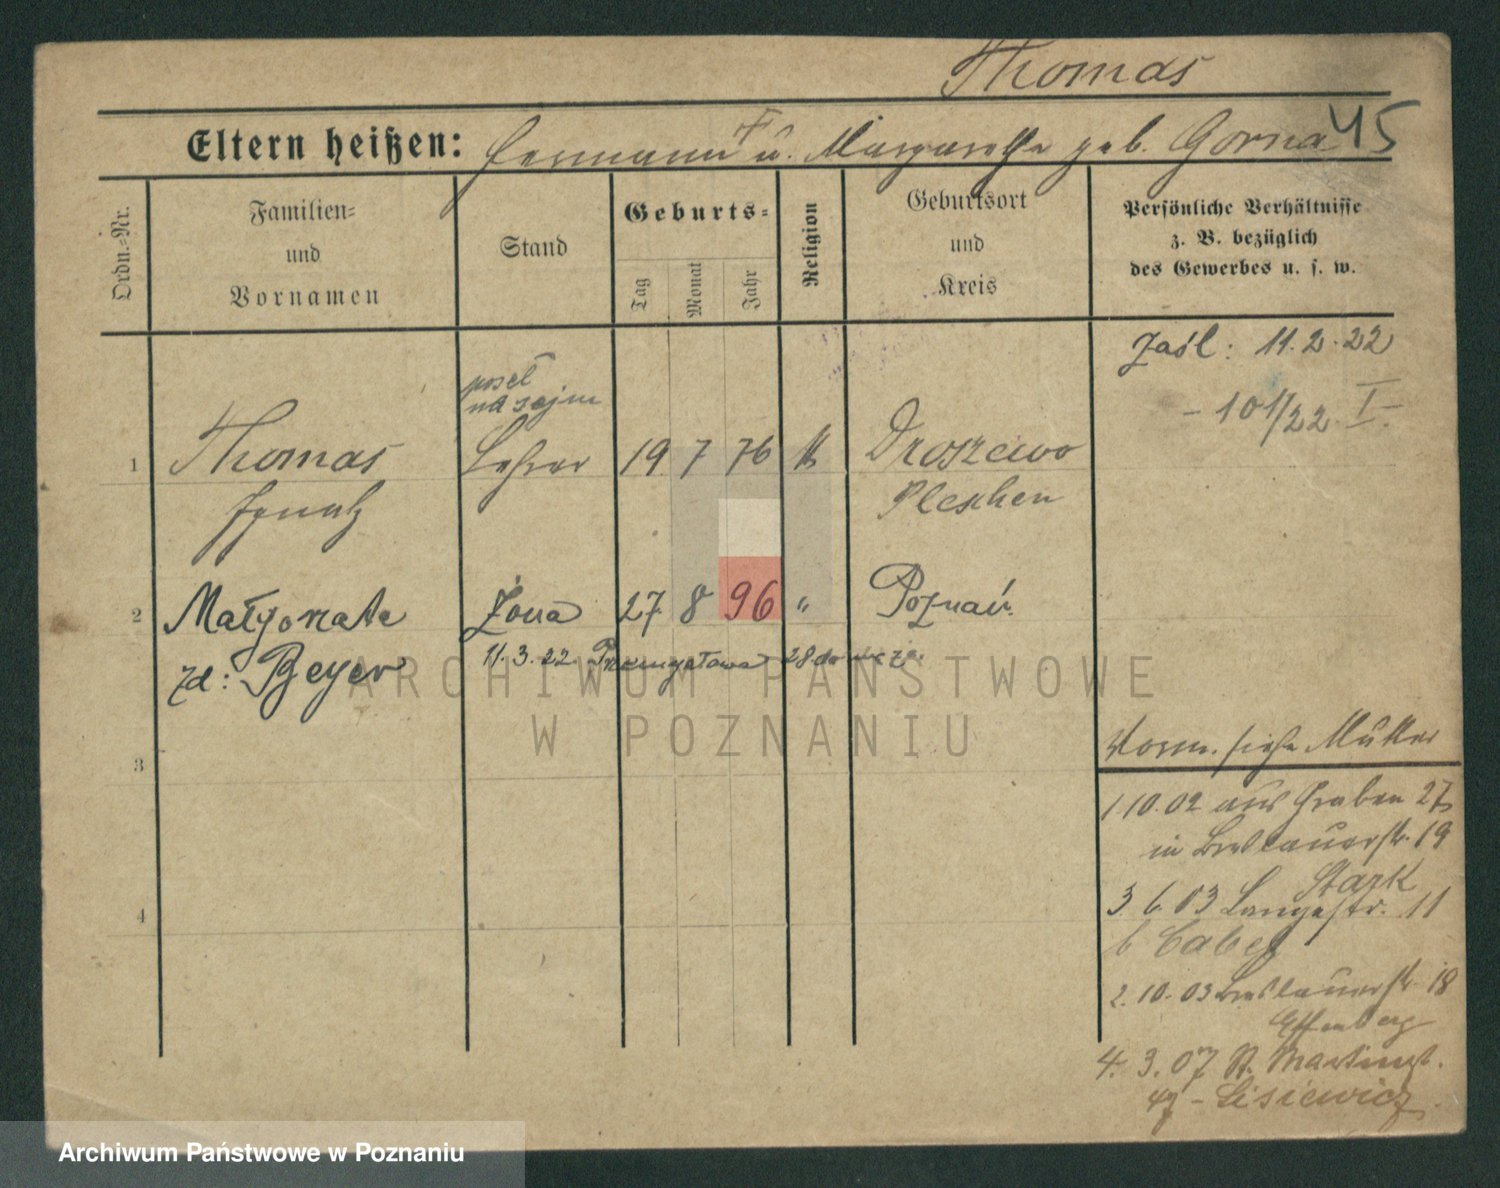 Thomas
Eltern heißen: Hermann † u. Margarethe geb. Gorna 45
Ordn.-Nr.
Familien-
und
Vornamen
Stand
Geburts-
Tag
Monat
Jahr
Religion
Geburtsort
und
Kreis
Persönliche Verhältnisse
z. B. bezüglich
des Gewerbes u. s. w.
zaśl: 11.2.22
- 101/22 I -
poseł
na sejm
1 Thomas Lehrer 19 7 76 k Droszewo
Ignatz Pleschen
2 Małgorzata żona 27 8 96 " Poznań
zd: Beyer 11.3.22 28
3
4
Vorm. siehe Mutter
1.10.02 aus Graben 27
in Breslauerstr. 19
Stark
3.6.03 Langestr. 11
b
2.10.03 Breslauerstr 18
Effenberg
4.3.07 St. Martinst.
- Lisiewicz
ARCHIWUM PAŃSTWOWE
W POZNANIU
Archiwum Państwowe w Poznaniu